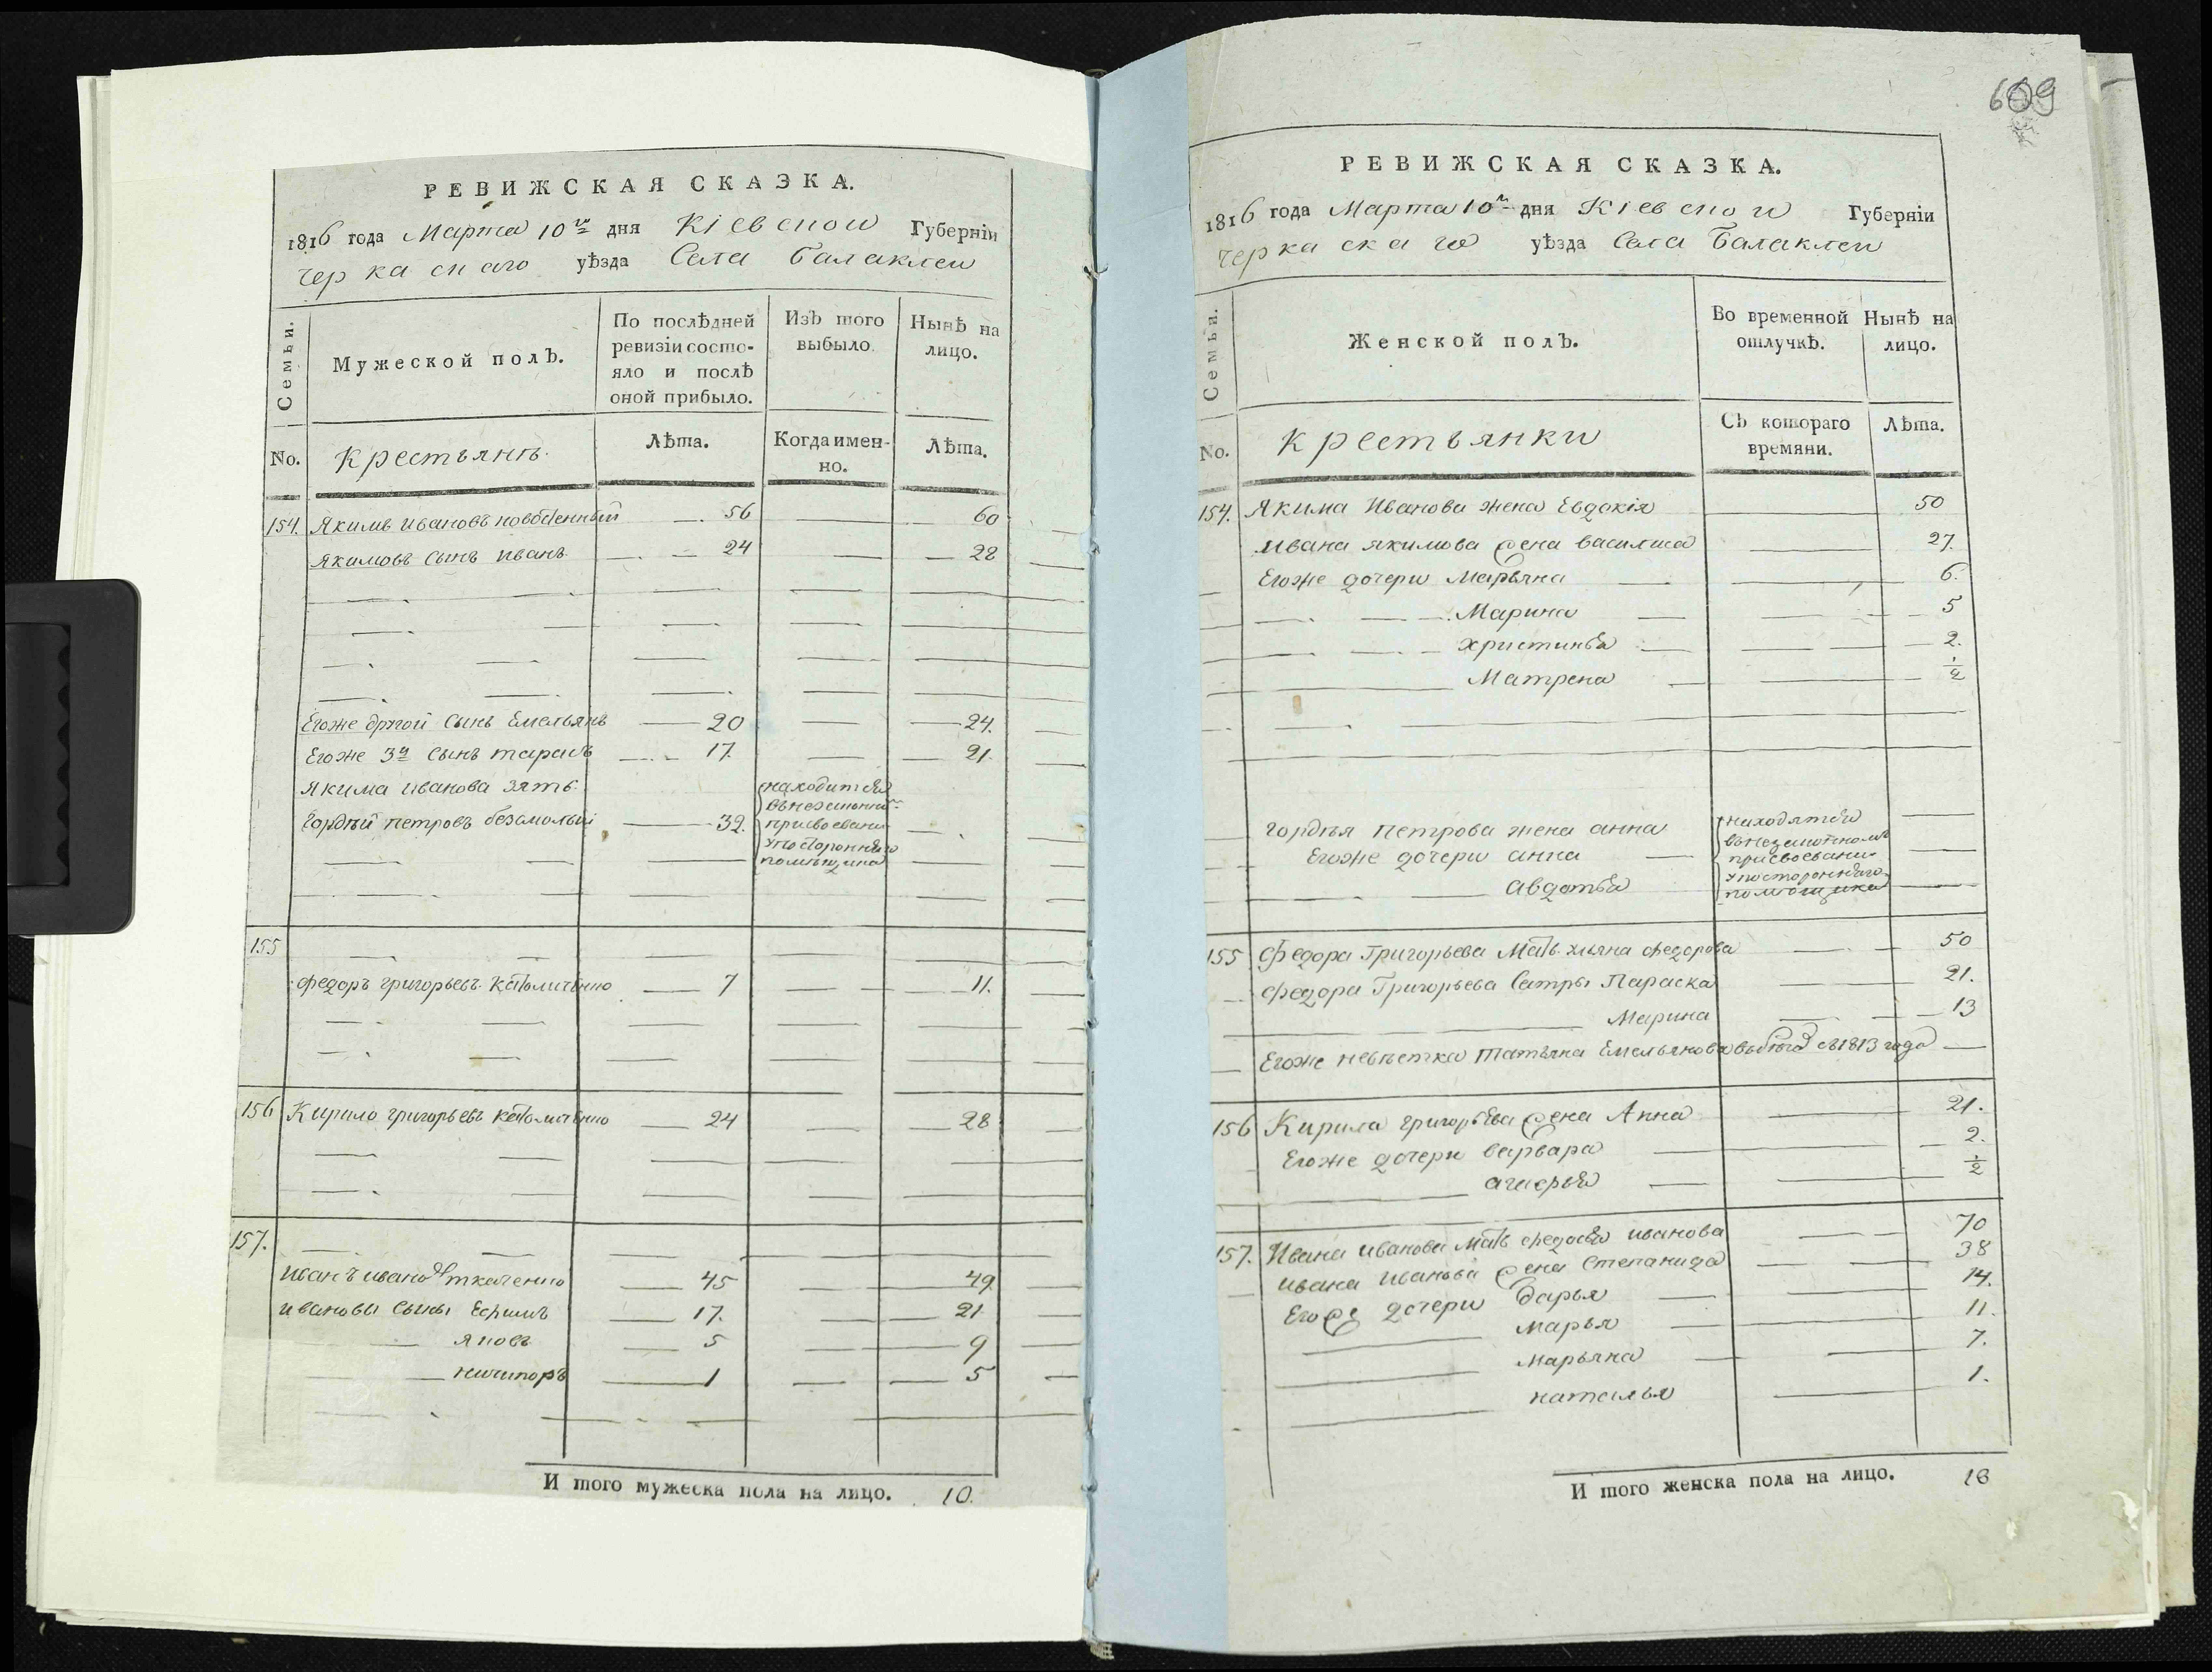 609
РЕВИЖСКАЯ СКАЗКА.
1816 года Марта 10го дня Кіевской Губерніи
Черкаскаго уѣзда Села Балаклеи
Семьи.
Мужеской полъ.
По послѣдней ревизіи состояло и послѣ оной прибыло.
Изъ того выбыло.
Нынѣ на лицо.
No.
Крестьянъ.
Лѣта.
Когда именно.
Лѣта.
154. Якимъ Ивановъ 56 60
Якимовъ сынъ Иванъ 24 28
Егоже другой сынъ Емельянъ 20 24.
Егоже 3й сынъ Тарасъ 17. 21.
Якима Иванова зять
Гордѣй Петровъ 32. находится
присвоеваніи
у посторонняго
помѣщика
155
Федоръ Григорьевъ 7 11.
156 Кирило Григорьевъ 24 28
157.
Иванъ Иванов Ткаченко 45 49
Ивановы сыны Ефимъ 17. 21
Яковъ 5 9
Ничипоръ 1 5
И того мужеска пола на лицо. 10.
РЕВИЖСКАЯ СКАЗКА.
1816 года Марта 10го дня Кіевской Губерніи
Черкаскаго уѣзда Села Балаклеи
Семьи.
Женской полъ.
Во временной отлучкѣ.
Нынѣ на лицо.
No.
Крестьянки
Съ котораго времяни.
Лѣта.
154. Якима Иванова жена Евдокія 50
Ивана Якимова жена Василиса 27.
Егоже дочери Марьяна 6.
Марина 5
Христинья 2.
Матрена ½
Гордѣя Петрова жена Анна находятся
Егоже дочери Анна
присвоеваніи
Авдотья у посторонняго
помѣщика
155 Федора Григорьева мать Федорова 50
Федора Григорьева сестры Параска 21.
Марина 13
Егоже невѣстка Татьяна Емельянова съ 1813 года
156 Кирила Григорьева жена Анна 21.
Егоже дочери Варвара 2.
Агафья ½
157. Ивана Иванова мать Федосья Иванова 70
Ивана Иванова жена Степанида 38
Егоже дочери Дарья 14.
Марья 11.
Марьяна 7.
Наталья 1.
И того женска пола на лицо. 18